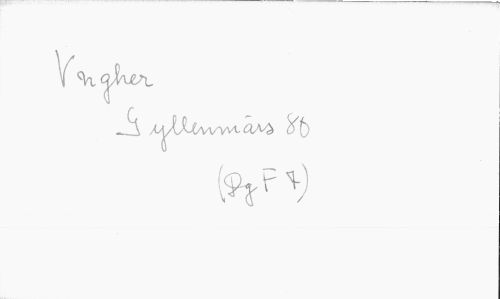 Vngher
Gyllenmärs 80
(Dg F 7)